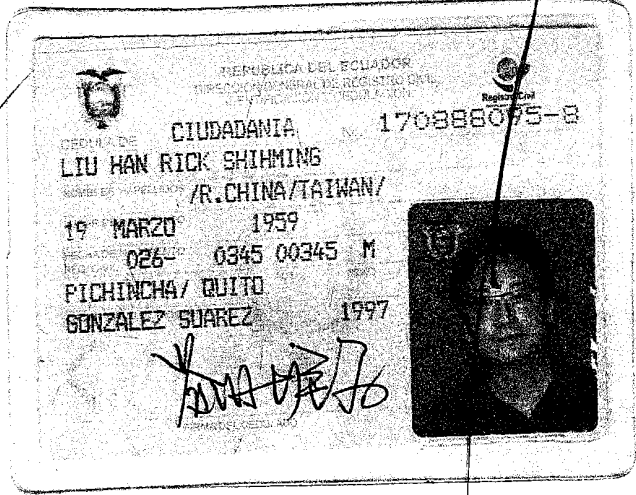 REPUBLICA DEL ECUADOR
DIRECCION GENERAL DE REGISTRO CIVIL
Registro Civil
CEDULA DE CIUDADANIA No. 170888095-8
LIU HAN RICK SHIHMING
/R.CHINA/TAIWAN/
19 MARZO 1959
026- 0345 00345 M
PICHINCHA/ QUITO
GONZALEZ SUAREZ 1997
FIRMA DEL CEDULADO